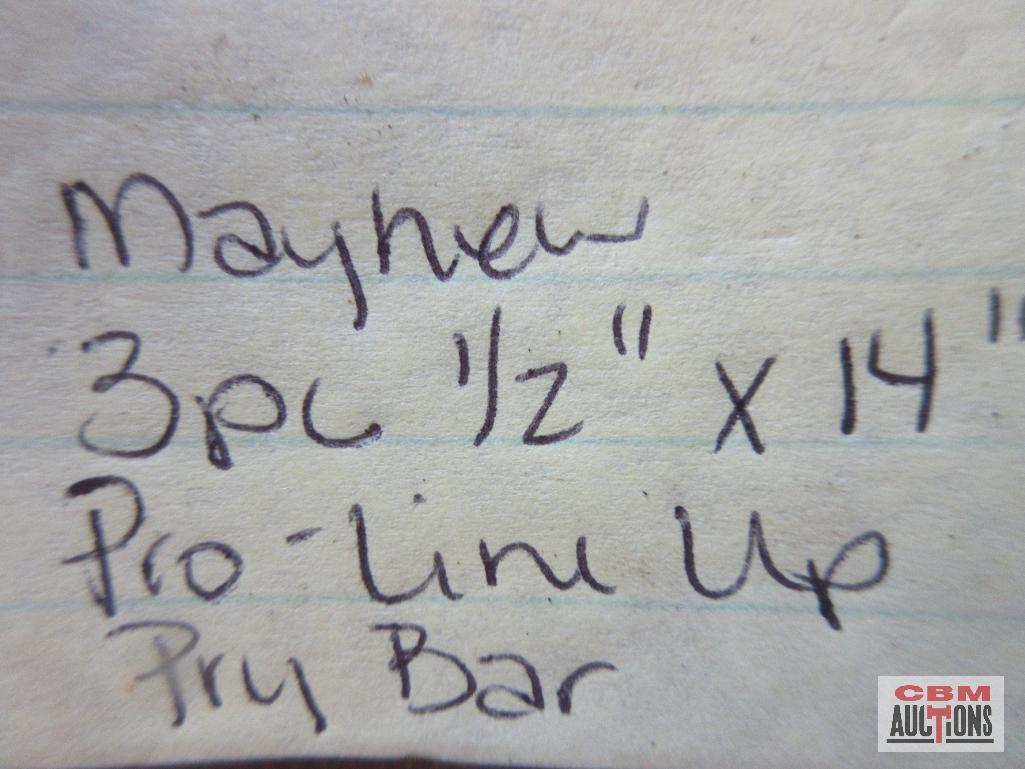 Mayhew
3pc 1/2" x 14"
Pro-Line Up
Pry Bar
CBM
AUCTIONS